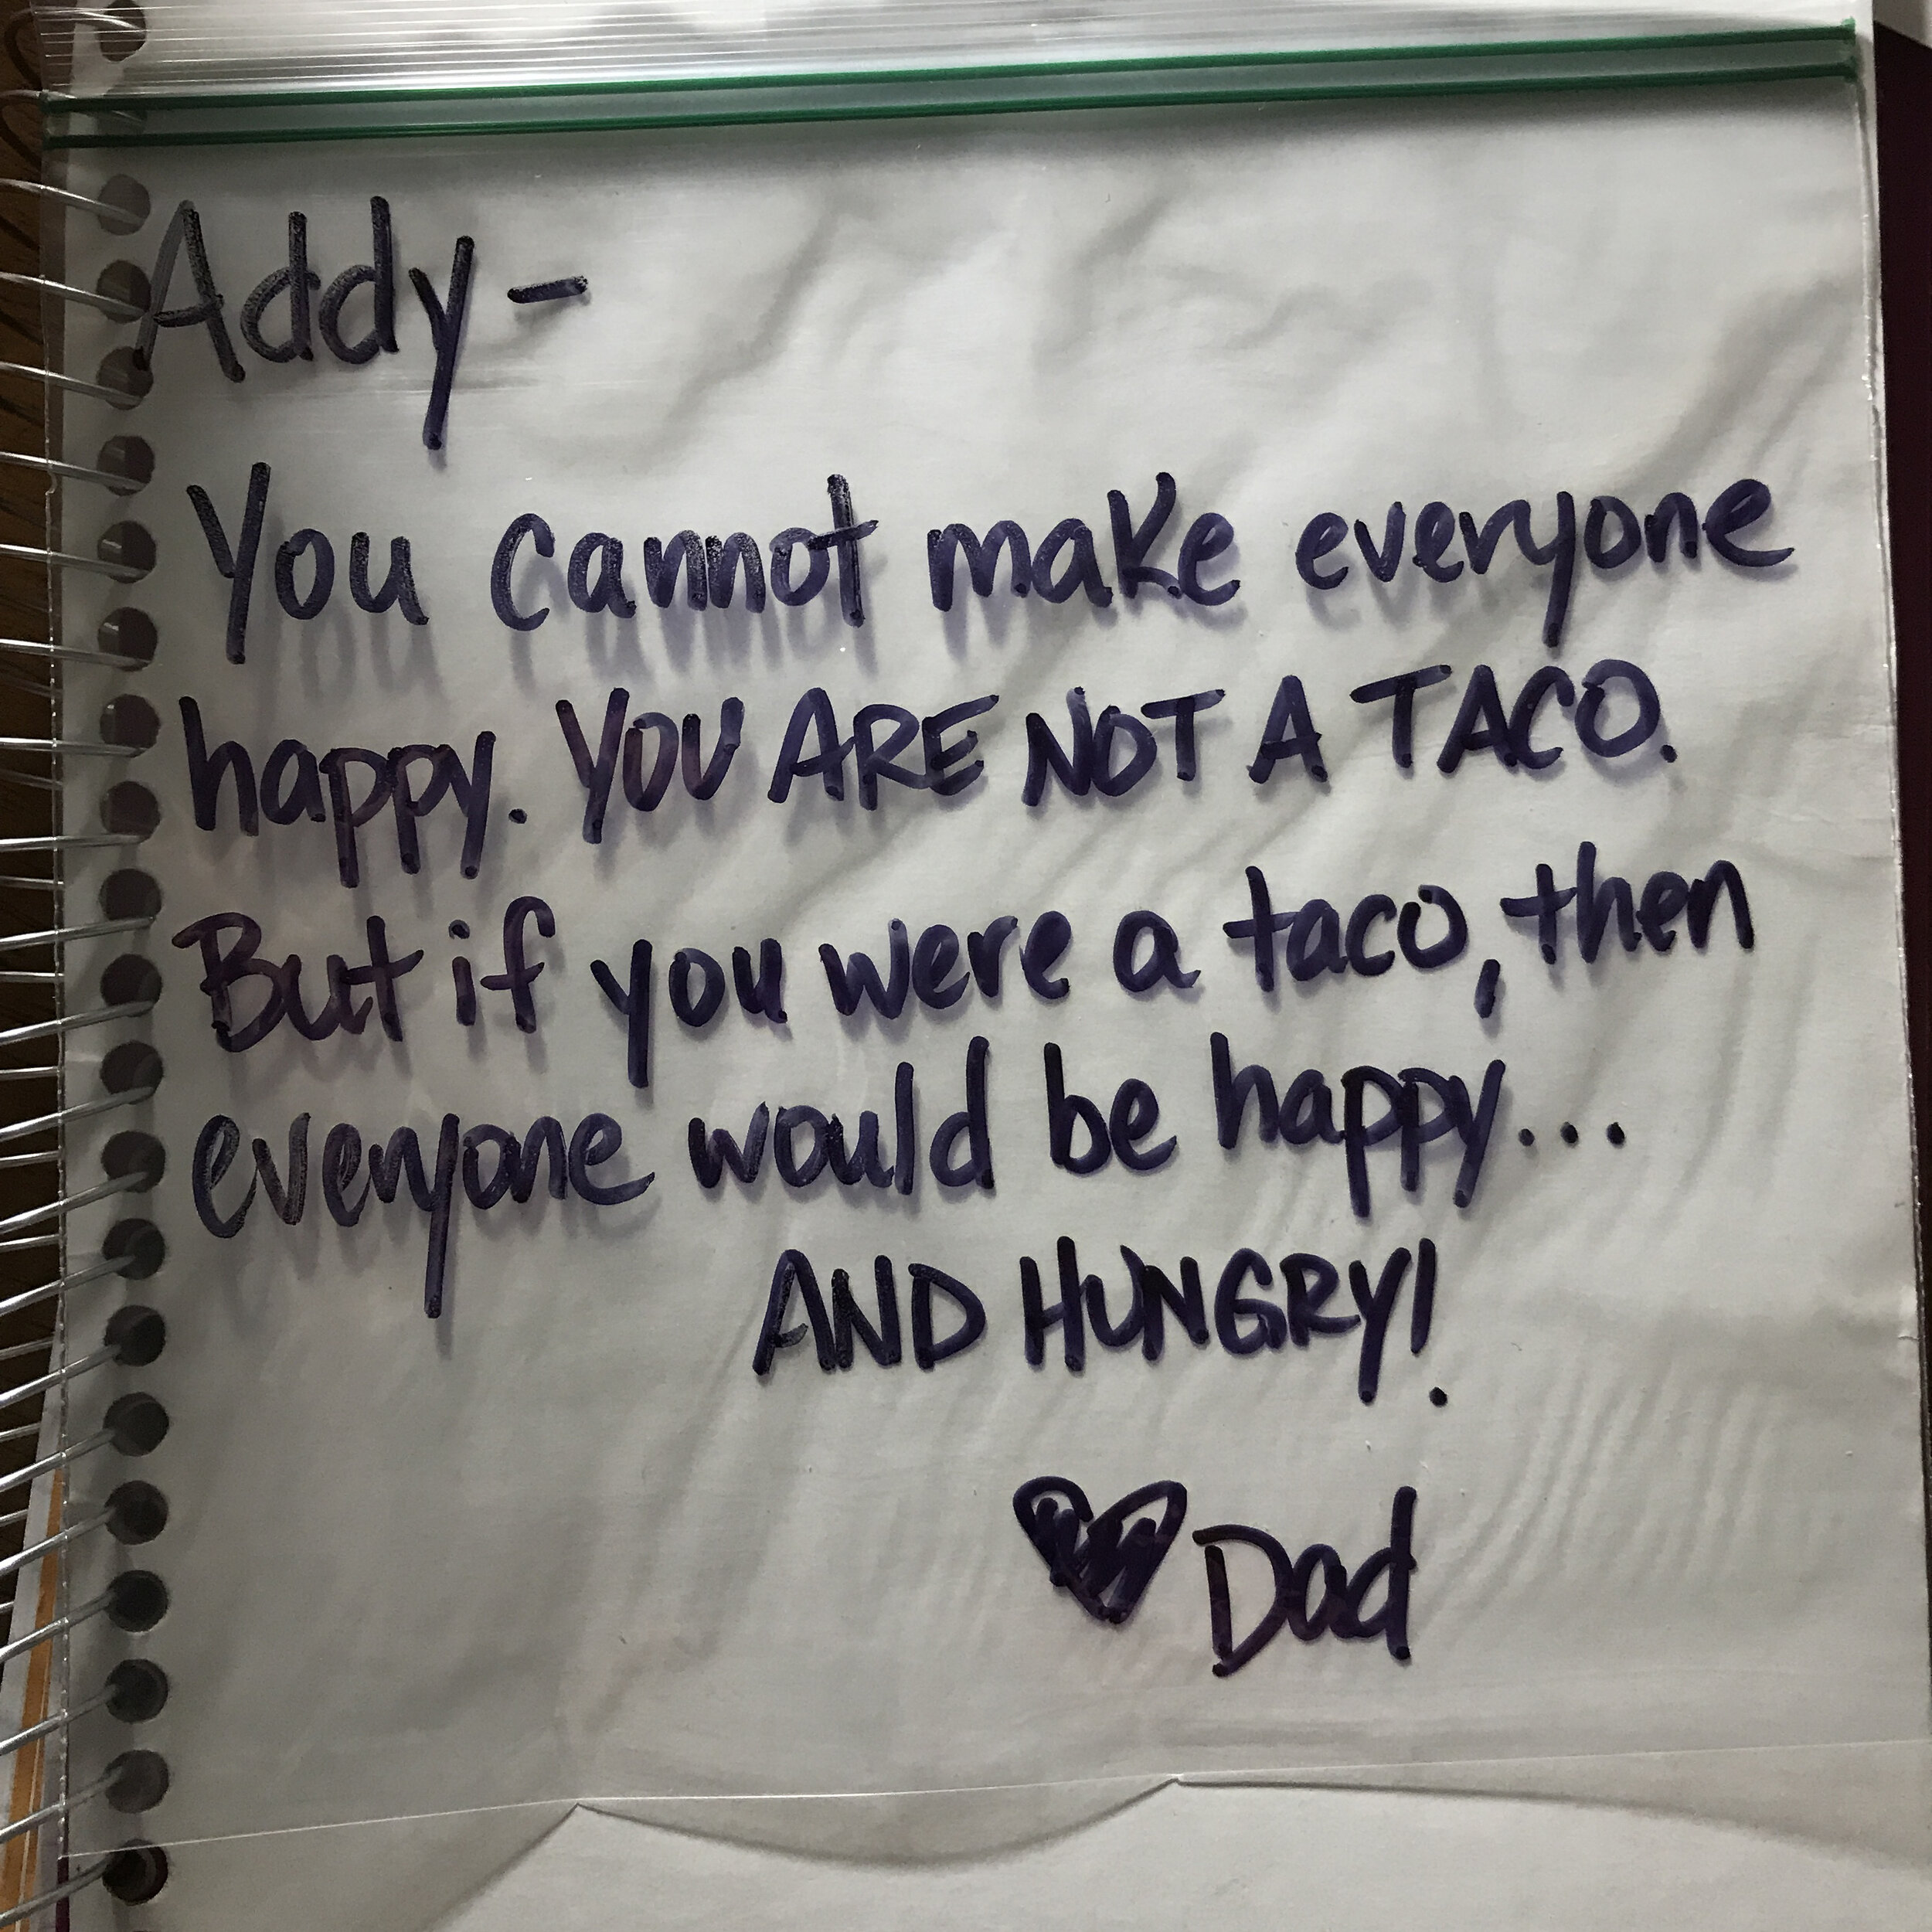 Addy -
You cannot make everyone
happy. YOU ARE NOT A TACO.
But if you were a taco, then
everyone would be happy...
AND HUNGRY!
♥ Dad